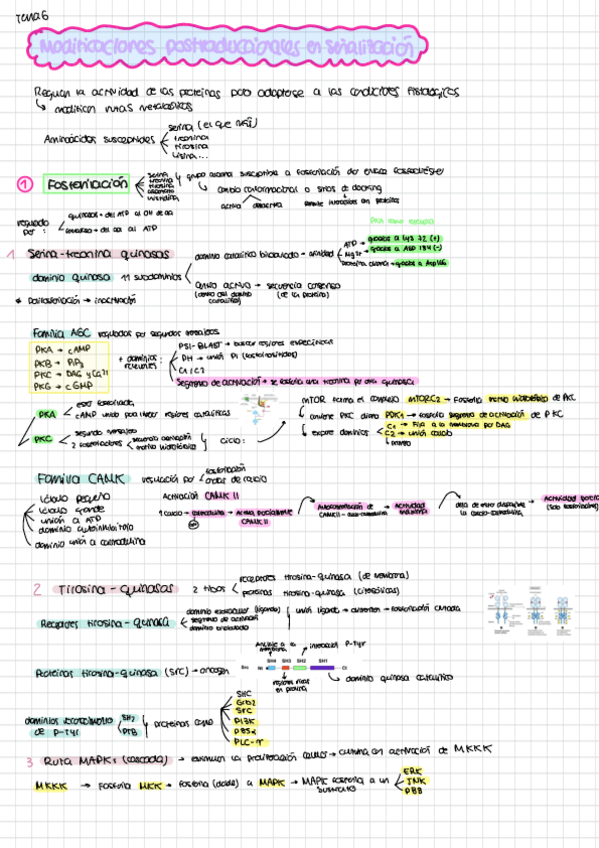 Tema 6
Modificaciones postraduccionales en señalización
Regulan la actividad de las proteínas para adaptarse a las condiciones fisiológicas
↳ modifican rutas metabólicas
Aminoácidos susceptibles
serina (el que más)
treonina
tirosina
lisina...
① Fosforilación
serina
treonina
tirosina
grupo susceptible a fosforilación por enlace fosfodiéster
↳ cambio conformacional o sitios de docking
activa
desactiva
regulado por:
quinasas → del ATP al OH de aa
del aa al ATP
PKA como ejemplo
1 Serina-treonina quinasas
dominio catalítico bilobulado → afinidad
ATP → gracias a Lys 72 (+)
Mg2+ → gracias a ASP 184 (-)
proteína diana → gracias a Asp166
dominio quinasa 11 subdominios
centro activo → secuencia consenso
(centro del dominio catalítico)
(de la proteína)
* → inactivación
Familia AGC regulados por segundos mensajeros
PKA → cAMP
PKB → PiP3
PKC → DAG y Ca2+
PKG → cGMP
+ dominios
PSI-BLAST → buscar regiones específicas
PH → unión Pi (fosfoinosítidos)
C1 / C2
Segmento de activación → se fosforila una treonina por otra quinasa
PKA
estar fosforilada
cAMP unido para liberar regiones catalíticas
PKC
segundo mensajero
2 fosforilaciones
segmento activación
motivo hidrofóbico
ciclo:
mTOR forma el complejo mTORC2 → fosforila motivo hidrofóbico de PKC
PDK1 → fosforila segmento de activación de PKC
↳ expone dominios
C1 → Fija a la membrana por DAG
C2 → unión calcio
Familia CAMK regulación por
fosforilación
ondas de calcio
lóbulo pequeño
lóbulo grande
unión a ATP
dominio autoinhibitorio
dominio unión a calmodulina
Activación CAMK II
↑ calcio → calmodulina → Activa parcialmente CAMK II
Autofosforilación de CAMK II
→ Actividad máxima
deja de estar disponible la calcio-calmodulina → Actividad parcial
2 Tirosina-quinasas 2 tipos
receptores tirosina-quinasa (de membrana)
proteínas tirosina-quinasa (citosólicas)
Receptores tirosina-quinasa
dominio extracelular (ligando)
segmento de activación
dominio bilobulado
unión ligando → dimerizan → fosforilación cruzada
Proteínas tirosina-quinasa (SRC) → oncogén
Anclaje a la membrana
interacción P-Tyr
SH4 SH3 SH2 SH1
regiones ricas en prolina
↳ dominio quinasa catalítico
dominios reconocimiento de P-Tyr
SH2
PTB
proteínas como
SHC
Grb2
SrC
PI3K
P85α
PLC-γ
3 Ruta MAPKs (cascada) → estimulan la proliferación celular → culmina en activación de MKKK
MKKK → fosforila MKK → fosforila (doble) a MAPK → MAPK fosforila a un sustrato
ERK
JNK
P38